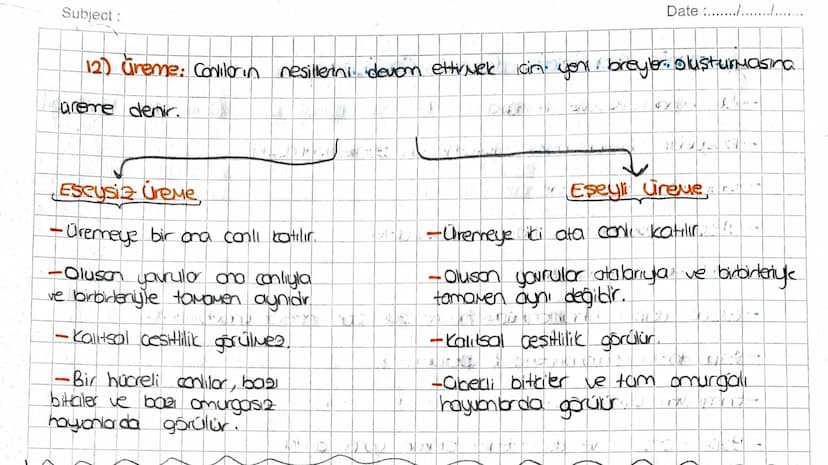 Subject :
Date :....../......./......
12) Üreme: Canlıların nesillerini devam ettirmek için yeni bireyler oluşturmasına
üreme denir.
Eşeysiz üreme
- Üremeye bir ana canlı katılır.
- Oluşan yavrular ana canlıyla
ve birbirleriyle tamamen aynıdır
- Kalıtsal çeşitlilik görülmez.
- Bir hücreli canlılar, bazı
bitkiler ve bazı omurgasız
hayvanlarda görülür.
Eşeyli üreme
- Üremeye iki ata canlı katılır.
- Oluşan yavrular atalarıyla ve birbirleriyle
tamamen aynı değildir.
- Kalıtsal çeşitlilik görülür.
- Çiçekli bitkiler ve tüm omurgalı
hayvanlarda görülür